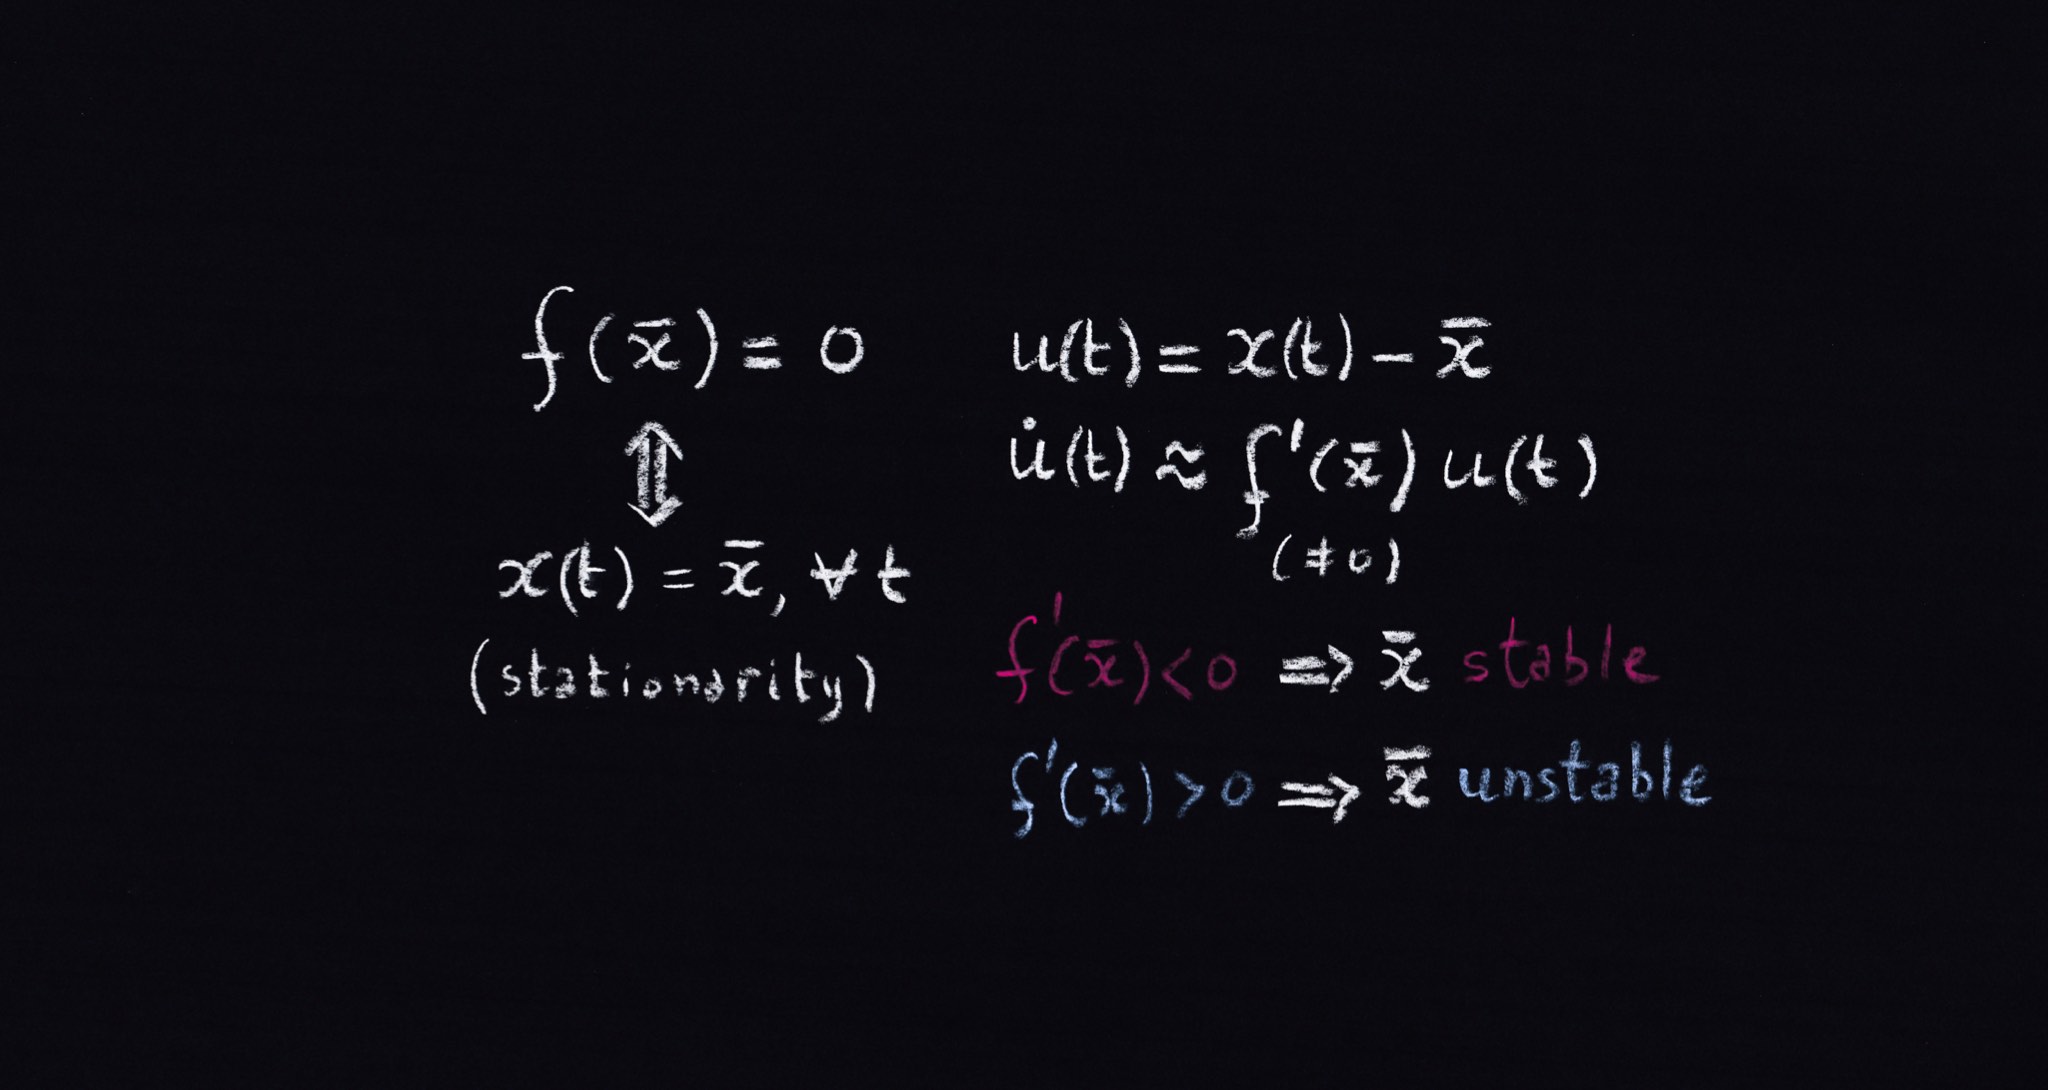 f(x̄) = 0
⇕
x(t) = x̄, ∀ t
(stationarity)
u(t) = x(t) − x̄
u̇(t) ≈ f'(x̄) u(t)
(≠0)
f'(x̄) < 0 ⇒ x̄ stable
f'(x̄) > 0 ⇒ x̄ unstable